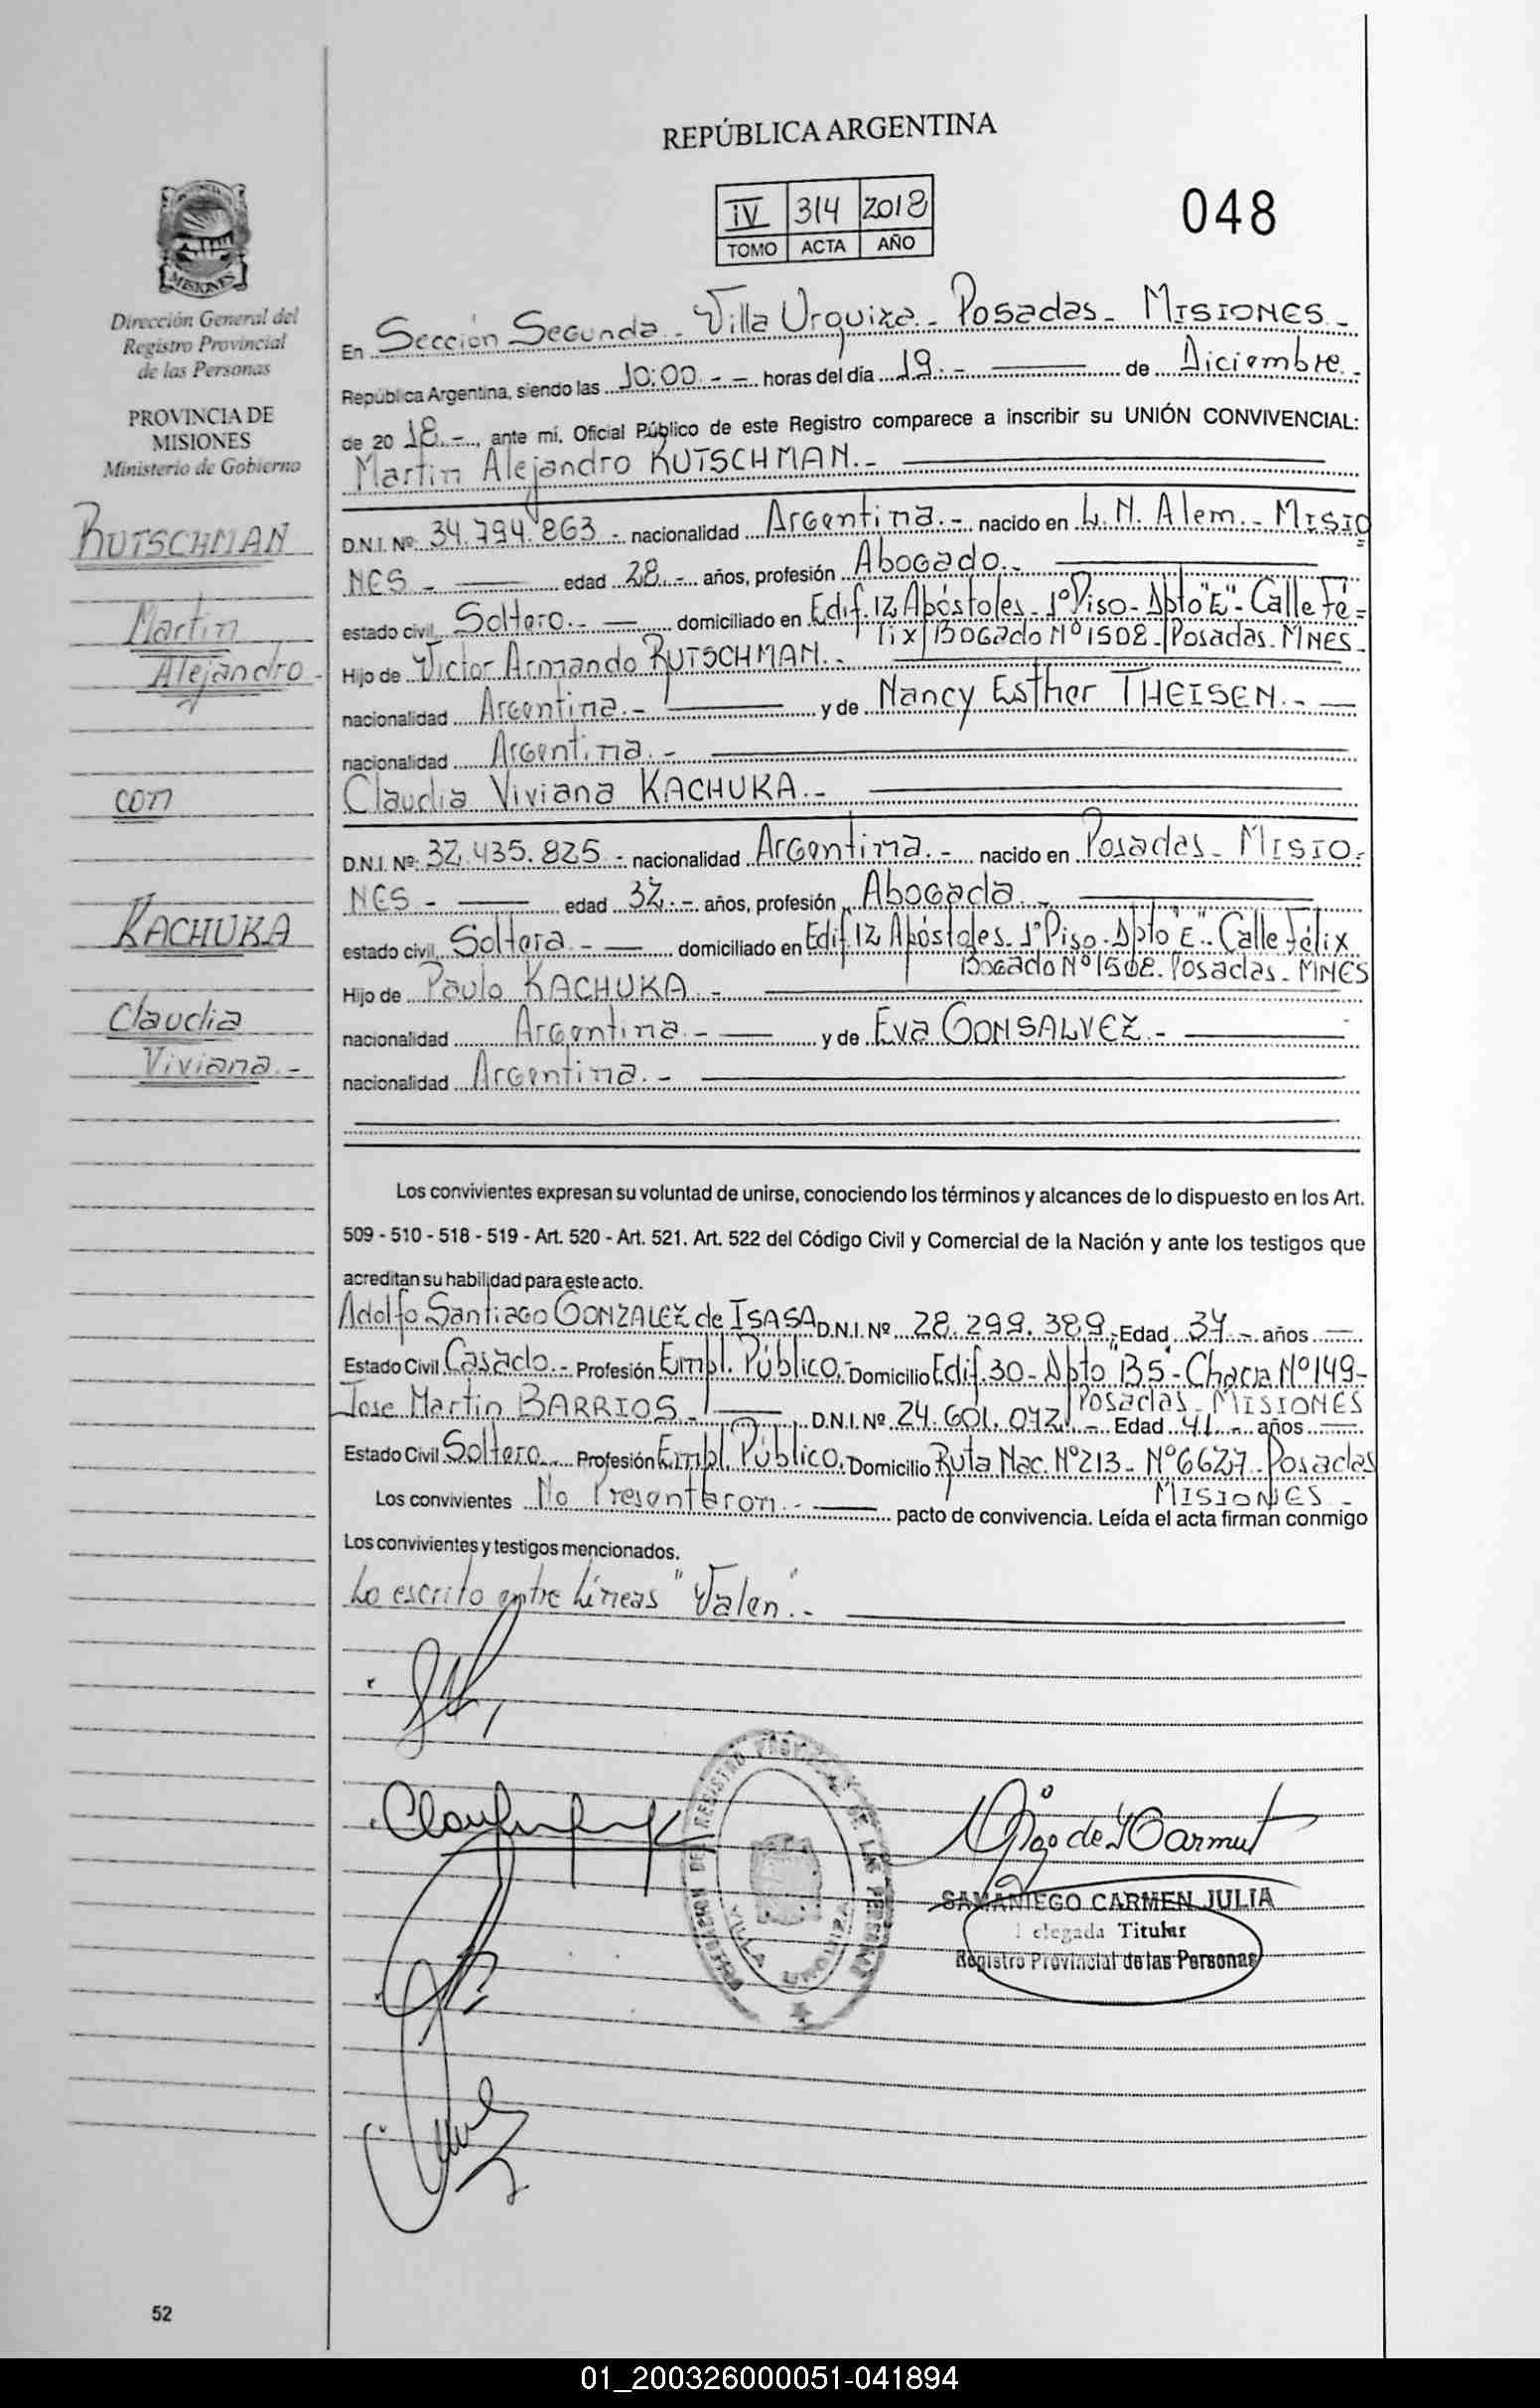 REPÚBLICA ARGENTINA
IV 314 2018
TOMO ACTA AÑO
048
MISIONES
Dirección General del
Registro Provincial
de las Personas
PROVINCIA DE
MISIONES
Ministerio de Gobierno
RUTSCHMAN
Martin
Alejandro -
con
KACHUKA
Claudia
Viviana.-
En Sección Segunda - Villa Urquiza - Posadas - MISIONES -
República Argentina, siendo las 10:00.- - horas del día 19.- de Diciembre.-
de 20 18.-, ante mí, Oficial Público de este Registro comparece a inscribir su UNIÓN CONVIVENCIAL:
Martin Alejandro RUTSCHMAN.-
D.N.I. Nº: 34.794.863 - nacionalidad Argentina.- nacido en L. N. Alem.- MISIO
NES - edad 28.- años, profesión Abogado.-
estado civil Soltero.- domiciliado en Edif. 12 Apóstoles - 1º Piso - Dpto "E" - Calle Fé=
lix Bogado Nº 1508 - Posadas - MNES -
Hijo de Victor Armando RUTSCHMAN.-
nacionalidad Argentina.- y de Nancy Esther THEISEN.-
nacionalidad Argentina.-
Claudia Viviana KACHUKA.-
D.N.I. Nº: 32.435.825 - nacionalidad Argentina.- nacido en Posadas - MISIO-
NES - edad 32.- años, profesión Abogada.-
estado civil Soltera - domiciliado en Edif. 12 Apóstoles. 1º Piso - Dpto "E" - Calle Félix
Bogado Nº 1508. Posadas - MNES
Hijo de Paulo KACHUKA.-
nacionalidad Argentina.- y de Eva GONSALVEZ.-
nacionalidad Argentina.-
Los convivientes expresan su voluntad de unirse, conociendo los términos y alcances de lo dispuesto en los Art.
509 - 510 - 518 - 519 - Art. 520 - Art. 521. Art. 522 del Código Civil y Comercial de la Nación y ante los testigos que
acreditan su habilidad para este acto.
Adolfo Santiago GONZALEZ de ISASA D.N.I. Nº 28.299.389.- Edad 37.- años
Estado Civil Casado.- Profesión Empl. Público.- Domicilio Edif. 30 - Dpto "B5" - Chacra Nº 149-
Posadas - MISIONES
Jose Martin BARRIOS - D.N.I. Nº 24.601.042 - Edad 41.- años
Estado Civil Soltero Profesión Empl. Público. Domicilio Ruta Nac. Nº 213 - Nº 6627 - Posadas
MISIONES -
Los convivientes No Presentaron.- pacto de convivencia. Leída el acta firman conmigo
Los convivientes y testigos mencionados.
Lo escrito entre Líneas "Valen".-
DELEGACION DEL REGISTRO PROVINCIAL DE LAS PERSONAS
VILLA URQUIZA
SAMANIEGO CARMEN JULIA
Delegada Titular
Registro Provincial de las Personas
52
01_200326000051-041894